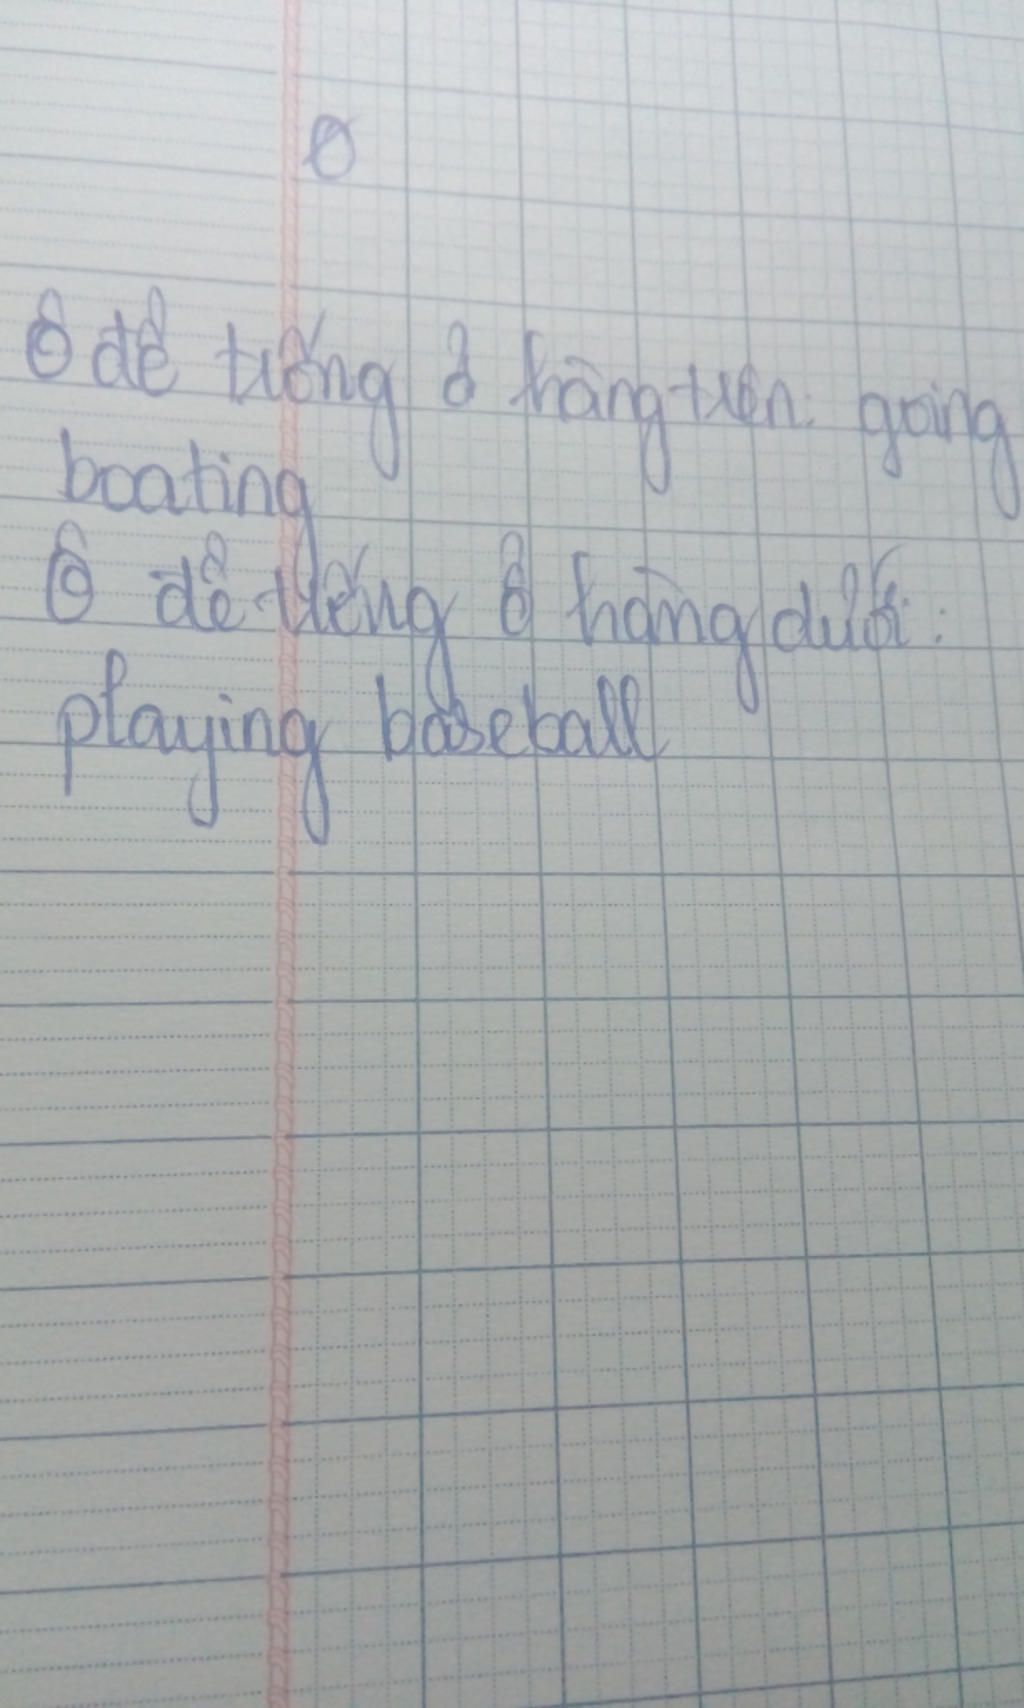 O
Ô để trống ở hàng trên: going
boating
Ô để trống ở hàng dưới:
playing baseball